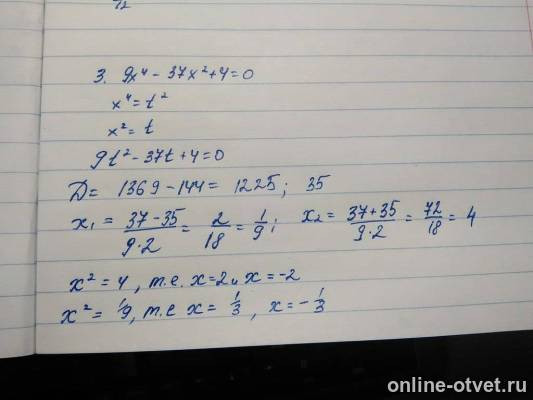 12
3. 9x⁴ - 37x² + 4 = 0
x⁴ = t²
x² = t
9t² - 37t + 4 = 0
D = 1369 - 144 = 1225; 35
x₁ = (37 - 35)/(9·2) = 2/18 = 1/9; x₂ = (37 + 35)/(9·2) = 72/18 = 4
x² = 4, т.е. x = 2 и x = -2
x² = 1/9, т.е x = 1/3, x = -1/3
online-otvet.ru